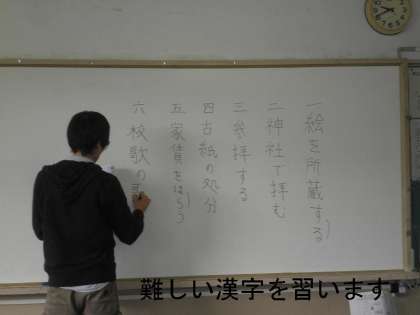 一絵を所蔵する
二神社で拝む
三参拝する
四古紙の処分
五家賃をはらう
六校歌の
難しい漢字を習います